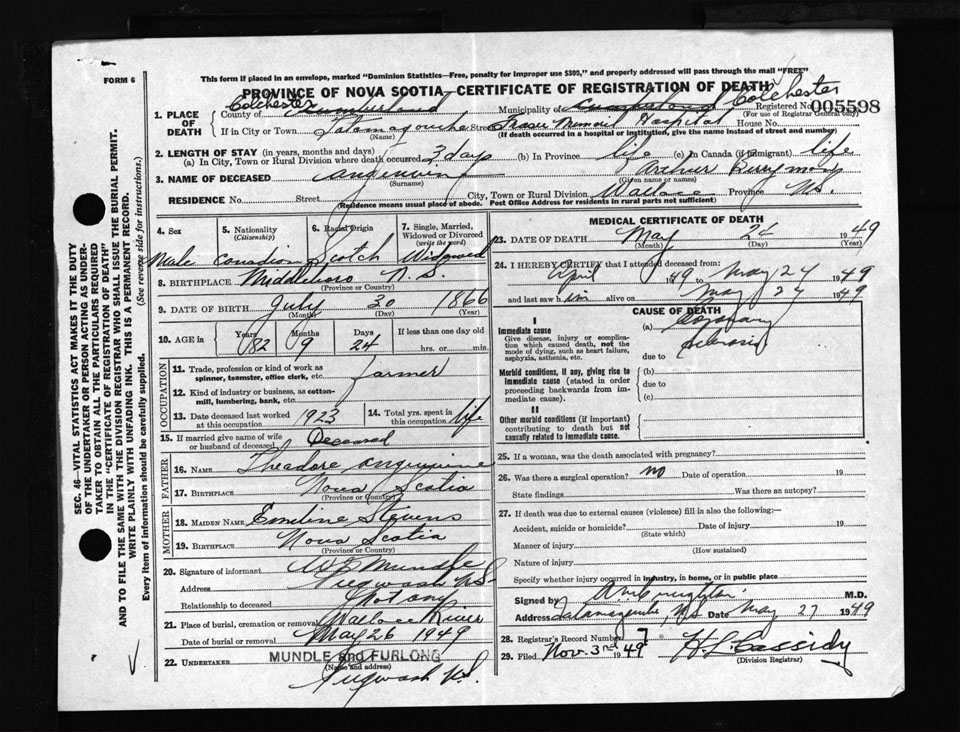 FORM 6
This form if placed in an envelope, marked "Dominion Statistics—Free, penalty for improper use $300," and properly addressed will pass through the mail "FREE"
PROVINCE OF NOVA SCOTIA—CERTIFICATE OF REGISTRATION OF DEATH
Registered No. 005598
(For use of Registrar General only)
1. PLACE OF DEATH
Colchester
County of Cumberland Municipality of Cumberland Colchester
If in City or Town Tatamagouche Street Hospital House No.
(Name) (If death occurred in a hospital or institution, give the name instead of street and number)
2. LENGTH OF STAY (in years, months and days)
(a) In City, Town or Rural Division where death occurred 3 days (b) In Province life (c) In Canada (if immigrant) life
3. NAME OF DECEASED Arthur
(Surname) (Given name or names)
RESIDENCE No. Street City, Town or Rural Division Wallace Province N.S.
(Residence means usual place of abode. Post Office Address for residents in rural parts not sufficient)
4. Sex
5. Nationality (Citizenship)
6. Racial Origin
7. Single, Married, Widowed or Divorced (write the word)
Male Canadian Scotch Widowed
8. BIRTHPLACE Middleboro N.S.
(Province or Country)
9. DATE OF BIRTH July 30 1866
(Month) (Day) (Year)
10. AGE in Years 82 Months 9 Days 24 If less than one day old
hrs. or min.
OCCUPATION
11. Trade, profession or kind of work as spinner, teamster, office clerk, etc. farmer
12. Kind of industry or business, as cotton-mill, lumbering, bank, etc.
13. Date deceased last worked at this occupation 1923
14. Total yrs. spent in this occupation life
15. If married give name of wife or husband of deceased Deceased
FATHER
16. NAME Theadore
17. BIRTHPLACE Nova Scotia
(Province or Country)
MOTHER
18. MAIDEN NAME Emeline Stevens
19. BIRTHPLACE Nova Scotia
(Province or Country)
20. Signature of informant Mundle
Address Pugwash N.S.
Relationship to deceased Not any
21. Place of burial, cremation or removal Wallace River
Date of burial or removal May 26 1949
22. UNDERTAKER MUNDLE and FURLONG
(Name and address)
Pugwash N.S.
MEDICAL CERTIFICATE OF DEATH
23. DATE OF DEATH May 24 1949
(Month) (Day) (Year)
24. I HEREBY CERTIFY that I attended deceased from
April 1949 to May 24 1949
and last saw him alive on May 24 1949
CAUSE OF DEATH
I
Immediate cause
Give disease, injury or complication which caused death, not the mode of dying, such as heart failure, asphyxia, asthenia, etc.
(a) Coronary
Sclerosis
due to
Morbid conditions, if any, giving rise to immediate cause (stated in order proceeding backwards from immediate cause).
(b)
due to
(c)
II
Other morbid conditions (if important) contributing to death but not causally related to immediate cause.
25. If a woman, was the death associated with pregnancy?
26. Was there a surgical operation? no Date of operation 19
State findings Was there an autopsy?
27. If death was due to external causes (violence) fill in also the following:—
Accident, suicide or homicide? Date of injury 19
(State which)
Manner of injury
(How sustained)
Nature of injury
Specify whether injury occurred in industry, in home, or in public place
Signed by M.D.
Address Tatamagouche, N.S. Date May 27 1949
28. Registrar's Record Number 7
29. Filed Nov. 3rd 1949 H. L. Cassidy
(Division Registrar)
SEC. 46—VITAL STATISTICS ACT MAKES IT THE DUTY
OF THE UNDERTAKER OR PERSON ACTING AS UNDER-
TAKER TO OBTAIN ALL THE PARTICULARS REQUIRED
IN THE "CERTIFICATE OF REGISTRATION OF DEATH"
AND TO FILE THE SAME WITH THE DIVISION REGISTRAR WHO SHALL ISSUE THE BURIAL PERMIT.
WRITE PLAINLY WITH UNFADING INK. THIS IS A PERMANENT RECORD.
Every item of information should be carefully supplied. (See reverse side for instructions.)